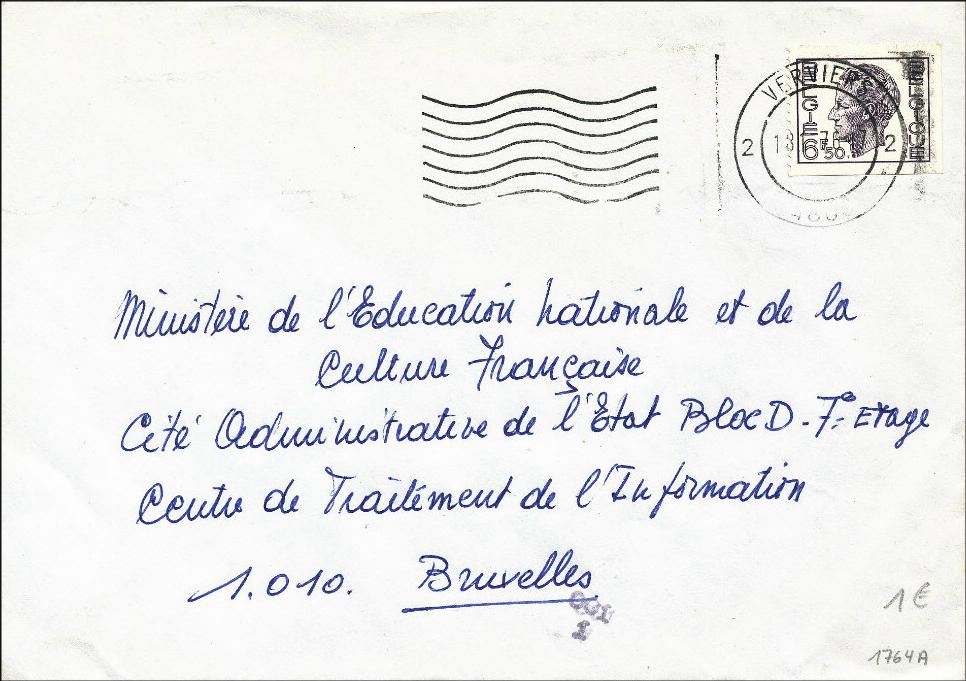 VERVIERS
BELGIE BELGIQUE
2 18 2
6F50.
Ministère de l'Education nationale et de la
Culture Française
Cité Administrative de l'Etat Bloc D - 7e Etage
Centre de Traitement de l'Information
1.010. Bruxelles
1
1€
1764A